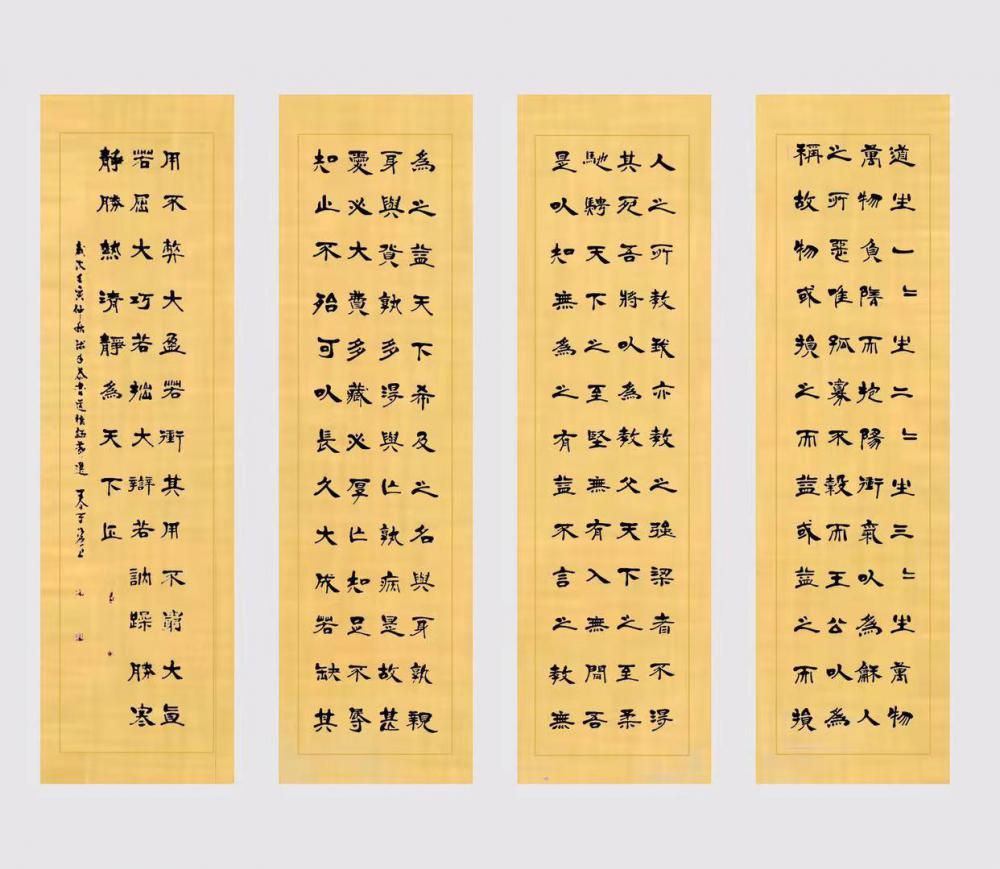 道生一〻生二〻生三〻生萬物
萬物負陰而抱陽衝氣以為龢人
之所惡唯孤寡不穀而王公以為
稱故物或損之而益或益之而損
人之所教我亦教之強梁者不得
其死吾將以為教父天下之至柔
馳騁天下之至堅無有入無間吾
是以知無為之有益不言之教無
為之益天下希及之名與身孰親
身與貨孰多得與亡孰病是故甚
愛必大費多藏必厚亡知足不辱
知止不殆可以長久大成若缺其
用不弊大盈若衝其用不窮大直
若屈大巧若拙大辯若訥躁勝寒
靜勝熱清靜為天下正
歲次壬寅仲秋書道德經節選